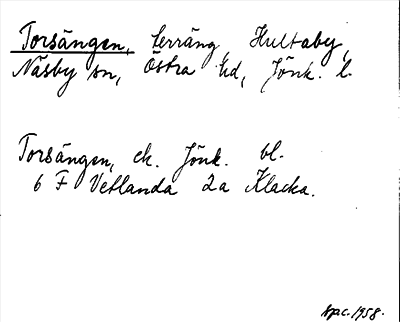 Torsängen, terräng, Hultaby,
Näsby sn, Östra hd, Jönk. l.
Torsängen, ek. Jönk. bl.
6 F Vetlanda 2a Klacka.
1958.